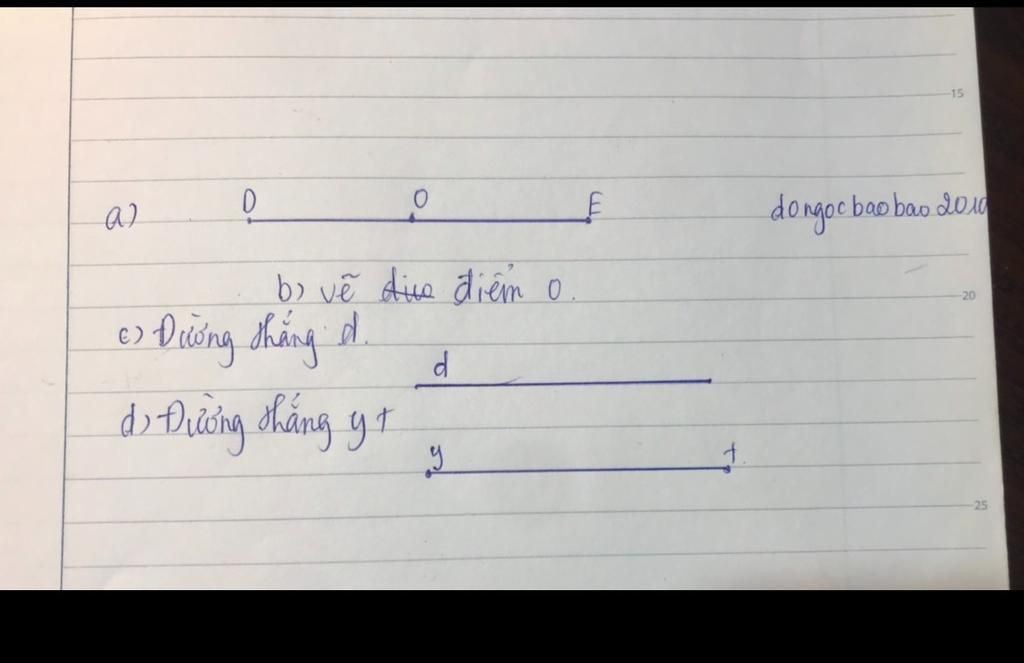 15
D O E
a) dongocbaobao2010
b) vẽ điểm O.
20
c) Đường thẳng d.
d
d) Đường thẳng yt
y t
25